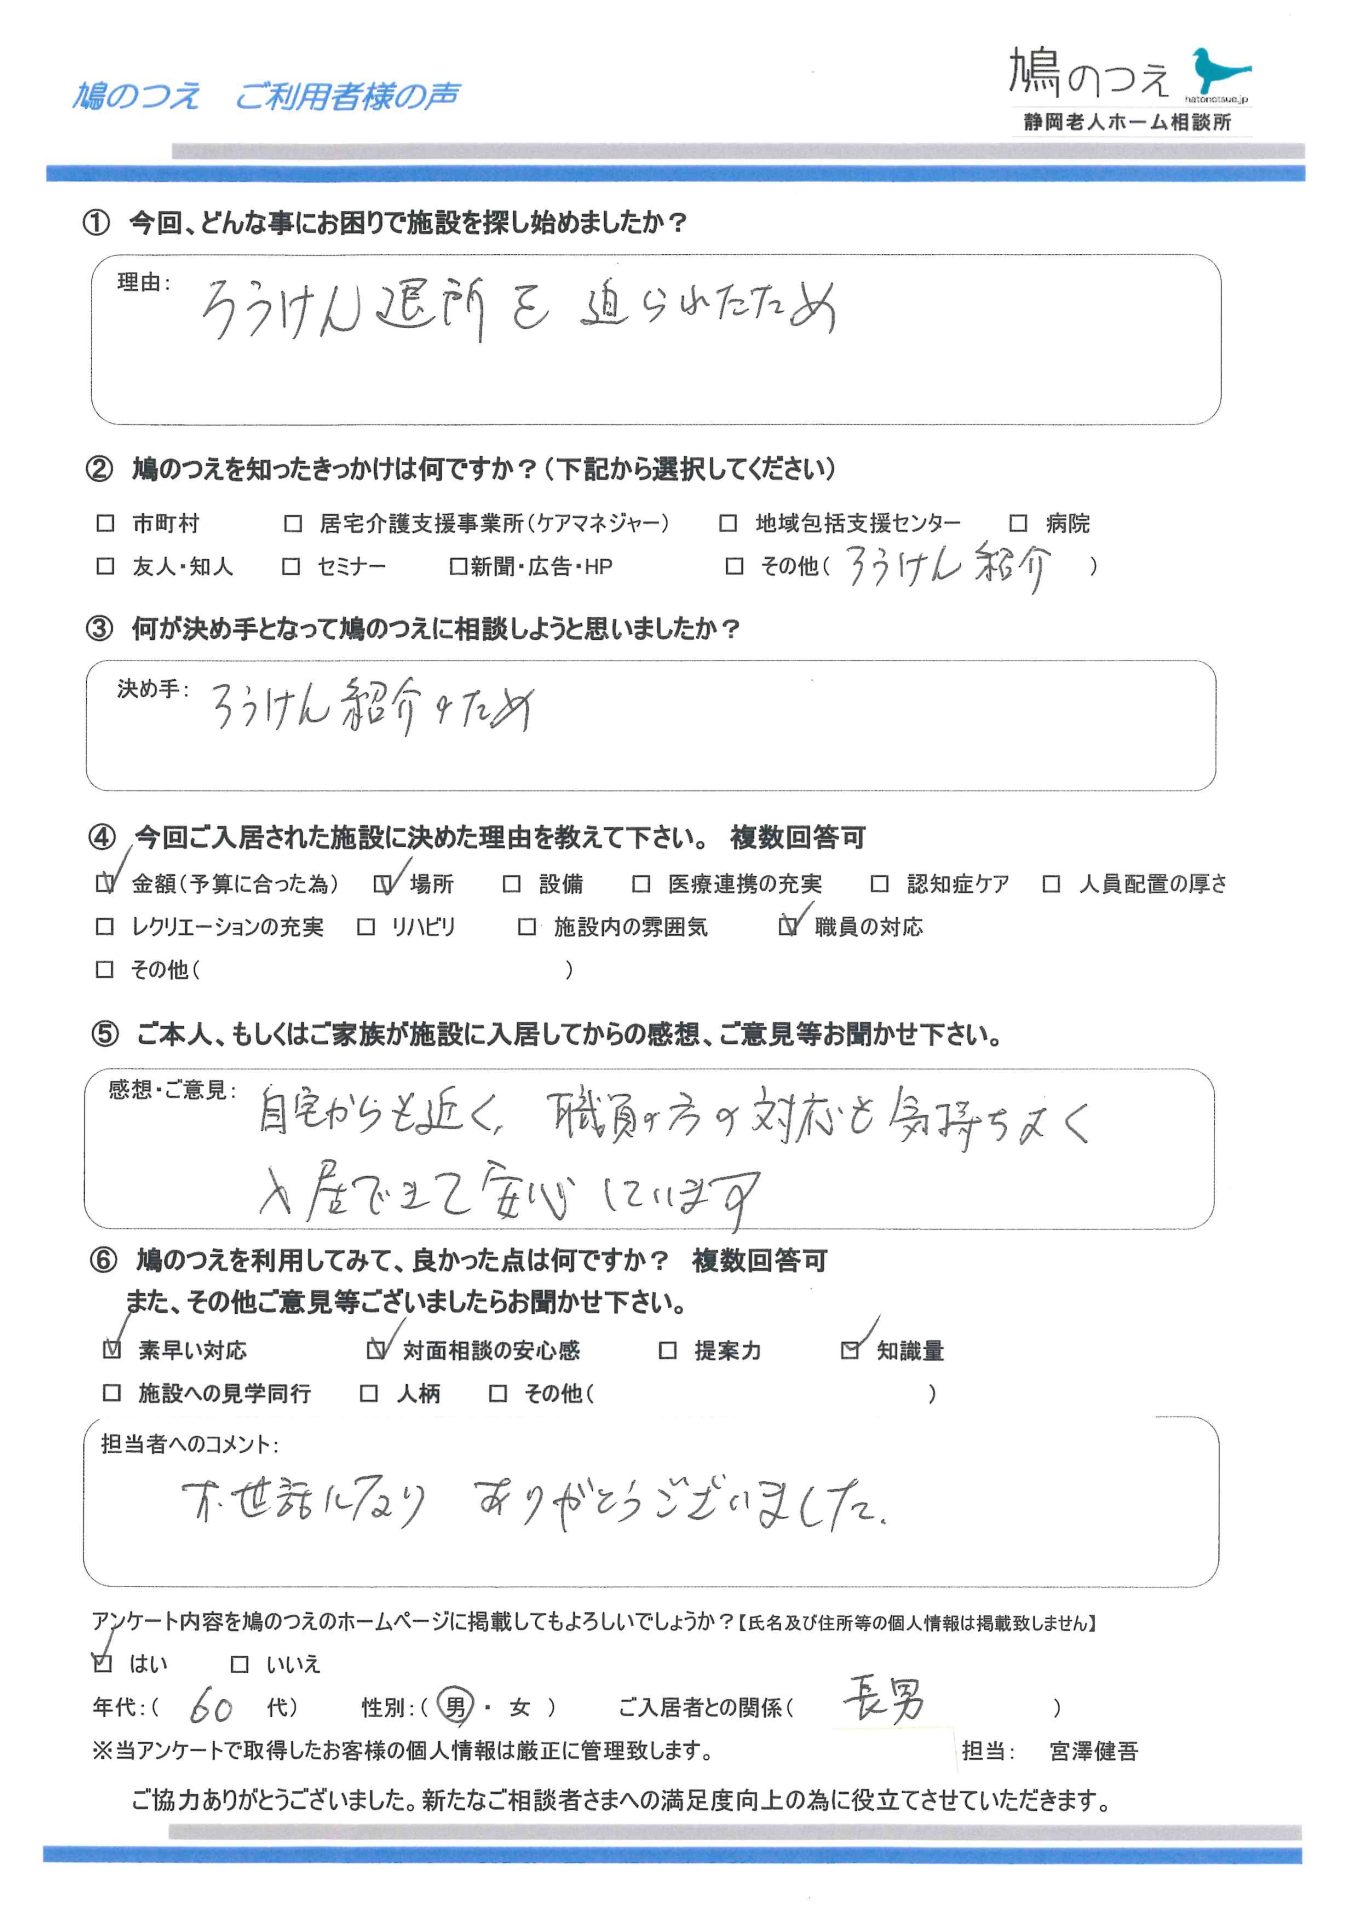 鳩のつえ ご利用者様の声
鳩のつえ
hatonotsue.jp
静岡老人ホーム相談所
① 今回、どんな事にお困りで施設を探し始めましたか？
理由： ろうけん退所を 迫られたため
② 鳩のつえを知ったきっかけは何ですか？（下記から選択してください）
□ 市町村 □ 居宅介護支援事業所（ケアマネジャー） □ 地域包括支援センター □ 病院
□ 友人・知人 □ セミナー □新聞・広告・HP □ その他（ ろうけん 紹介 ）
③ 何が決め手となって鳩のつえに相談しようと思いましたか？
決め手： ろうけん紹介のため
④ 今回ご入居された施設に決めた理由を教えて下さい。 複数回答可
☑ 金額（予算に合った為） ☑ 場所 □ 設備 □ 医療連携の充実 □ 認知症ケア □ 人員配置の厚さ
□ レクリエーションの充実 □ リハビリ □ 施設内の雰囲気 ☑ 職員の対応
□ その他（ ）
⑤ ご本人、もしくはご家族が施設に入居してからの感想、ご意見等お聞かせ下さい。
感想・ご意見： 自宅からも近く、職員の方の対応も気持ちよく
入居できて安心しています
⑥ 鳩のつえを利用してみて、良かった点は何ですか？ 複数回答可
また、その他ご意見等ございましたらお聞かせ下さい。
☑ 素早い対応 ☑ 対面相談の安心感 □ 提案力 ☑ 知識量
□ 施設への見学同行 □ 人柄 □ その他（ ）
担当者へのコメント：
お世話になり ありがとうございました。
アンケート内容を鳩のつえのホームページに掲載してもよろしいでしょうか？【氏名及び住所等の個人情報は掲載致しません】
☑ はい □ いいえ
年代：（ 60 代） 性別：（ 男 ・ 女 ） ご入居者との関係（ 長男 ）
※当アンケートで取得したお客様の個人情報は厳正に管理致します。 担当： 宮澤健吾
ご協力ありがとうございました。新たなご相談者さまへの満足度向上の為に役立てさせていただきます。